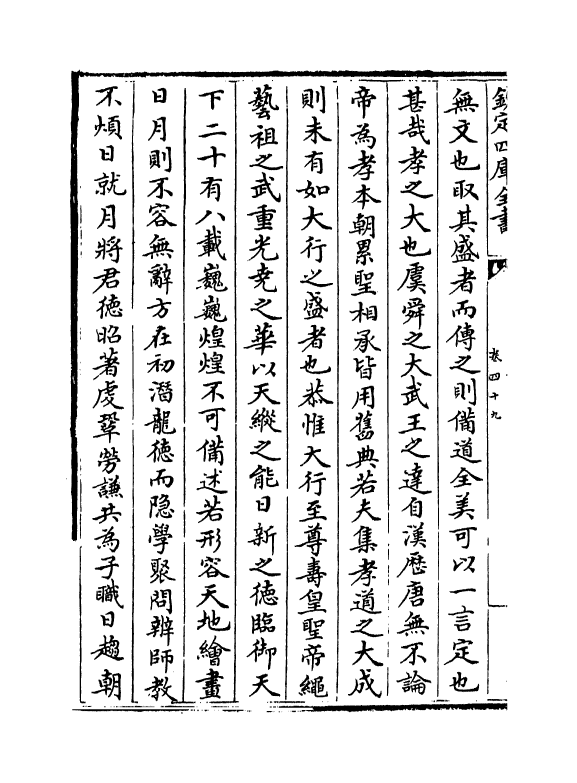 欽定四庫全書
卷四十九
無文也取其盛者而傳之則備道全美可以一言定也
甚哉孝之大也虞舜之大武王之達自漢歷唐無不論
帝為孝本朝累聖相承皆用舊典若夫集孝道之大成
則未有如大行之盛者也恭惟大行至尊壽皇聖帝繩
藝祖之武重光堯之華以天縱之能日新之德臨御天
下二十有八載巍巍煌煌不可備述若形容天地繪畫
日月則不容無辭方在初潛龍德而隱學聚問辨師教
不煩日就月將君德昭著虔鞏勞謙共為子職日趨朝